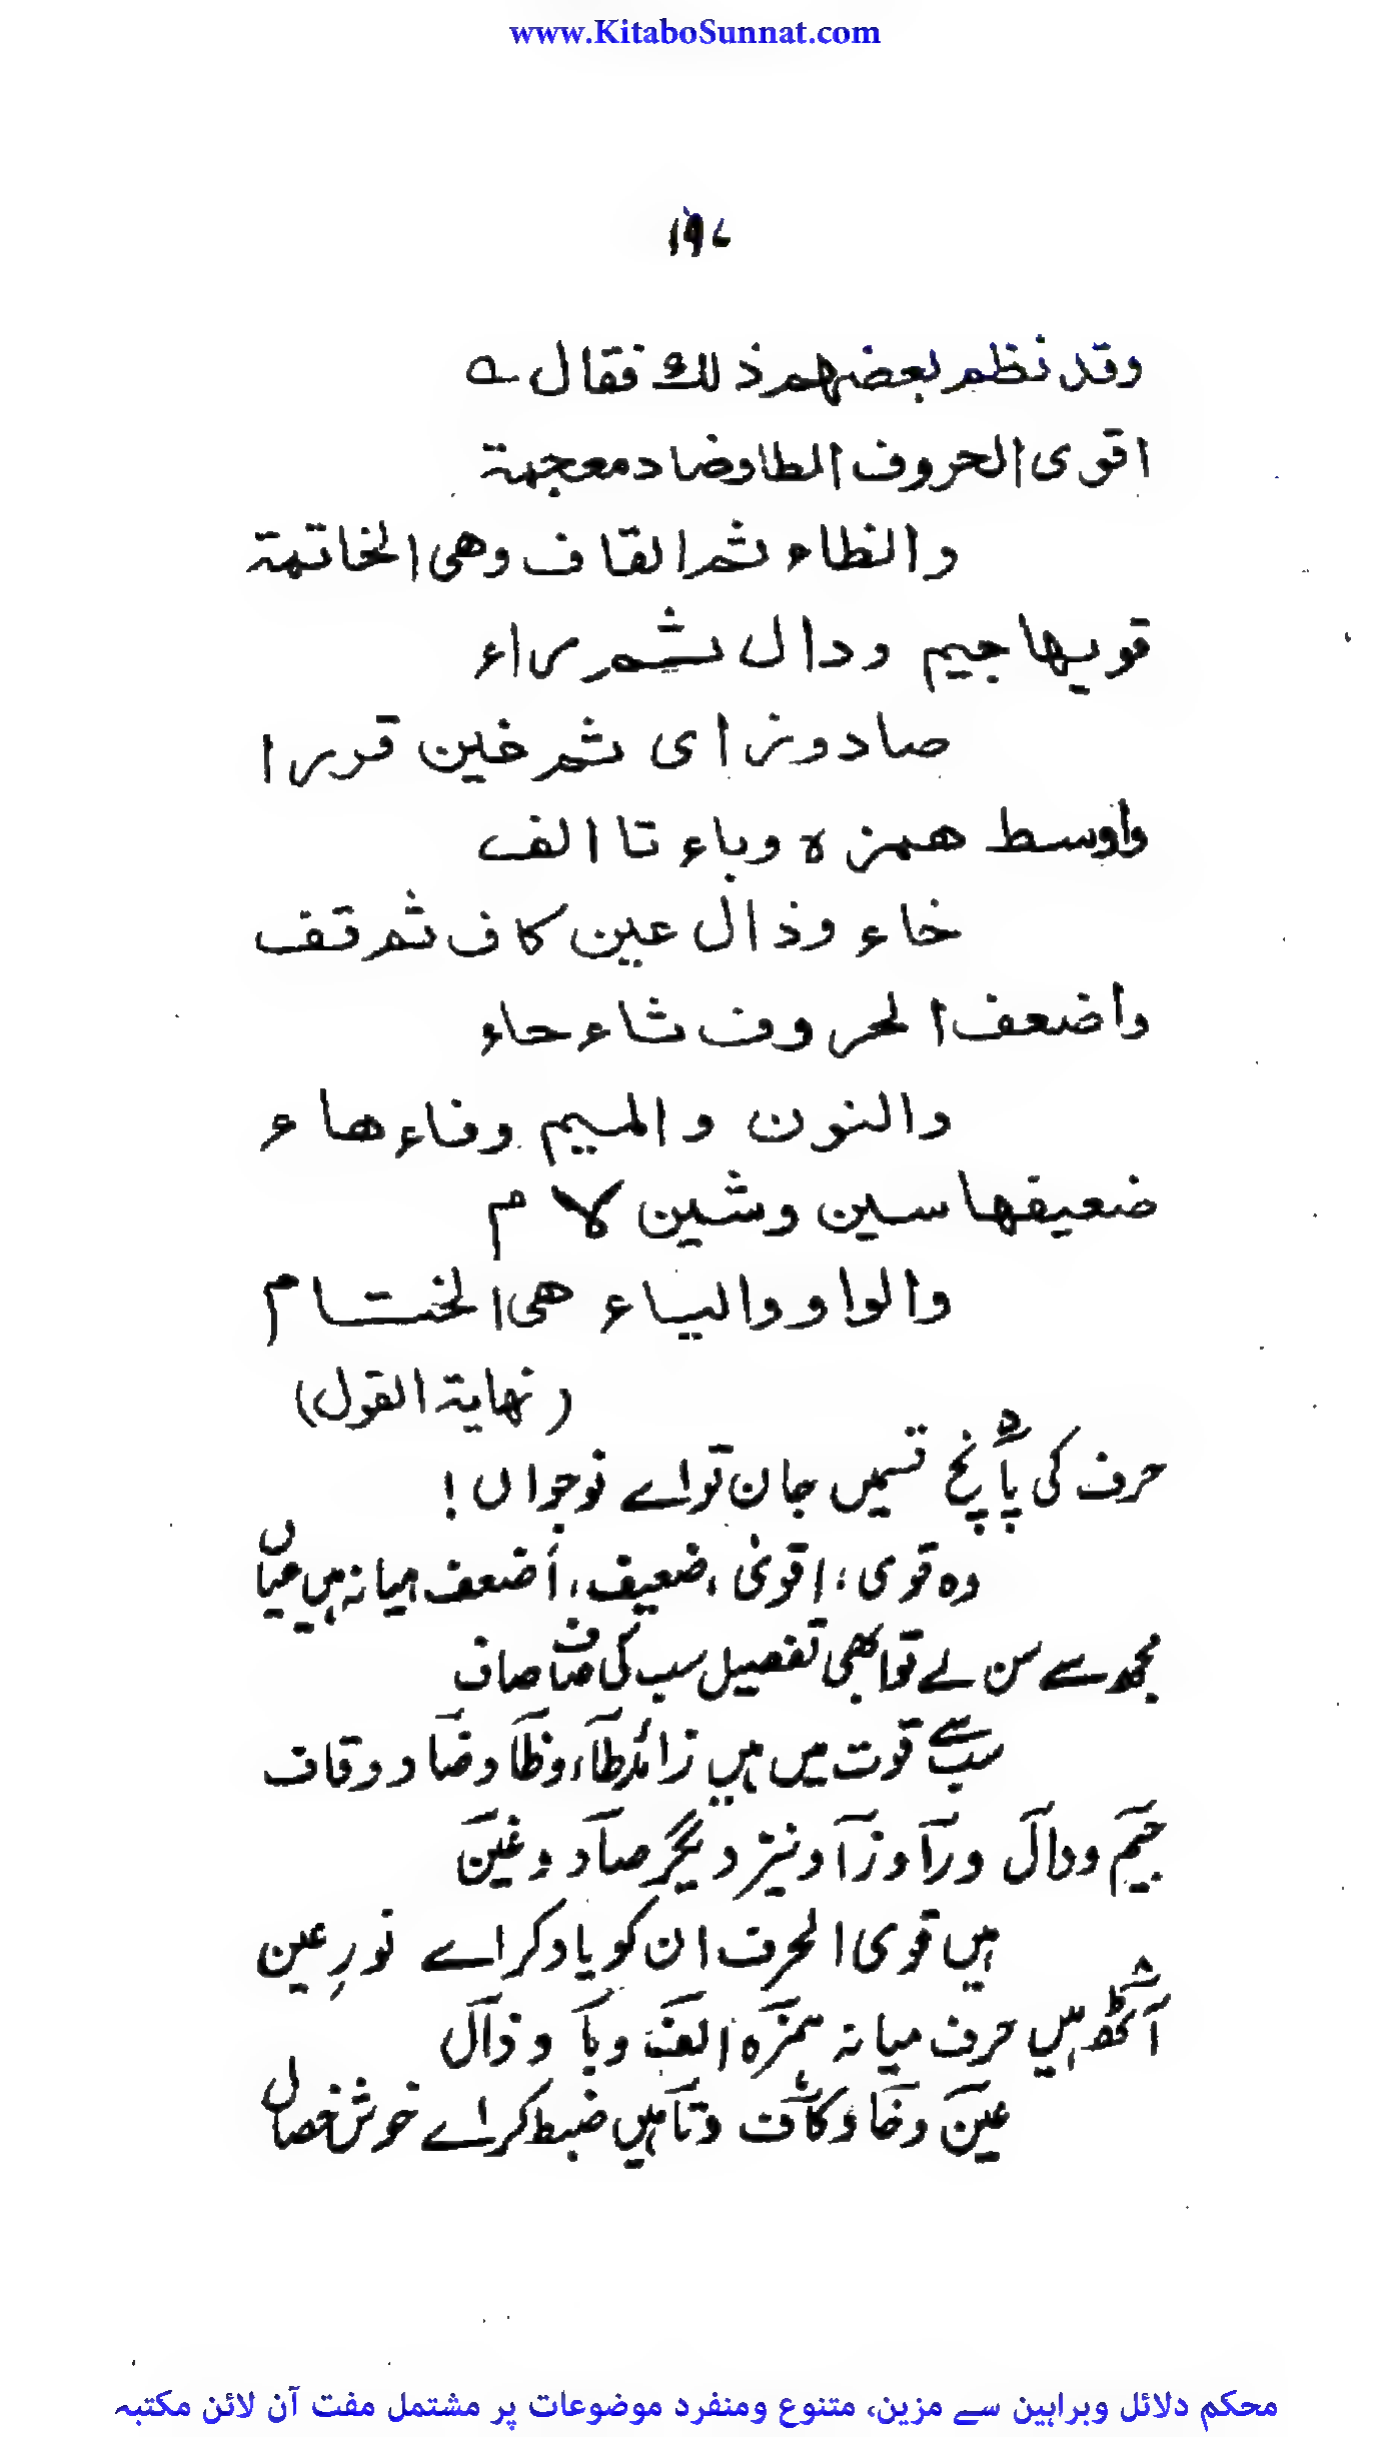 www.KitaboSunnat.com
۱۹۷
وقد نظم بعضهم ذلك فقال ؎
اقوى الحروف الطا وضاد معجمة
والظاء ثم القاف وهى الخاتمة
قويها جيم ودال ثم راء
صاد وزاى ثم غين قررا
واوسط همزة وباء تا الف
خاء وذال عين كاف ثم قف
وأضعف الحروف ثاء حاء
والنون والميم وفاء هاء
ضعيفها سين وشين لام
والواو والياء هى الختام
(نهاية القول)
حرف کی پانچ قسمیں جان تو اے نوجواں!
وہ قوی، اقویٰ، ضعیف، أضعف، میانہ ہیں عیاں
مجھ سے سن لے تو ابھی تفصیل سب کی صاف صاف
سب سے قوت میں ہیں زائد طآء وظآ وضآد وقاف
جیمؔ ودالؔ ورآ وزآ ونیز دیگر صآد وغینؔ
ہیں قوی الحرف ان کو یاد کر اے نورِ عین
آٹھ ہیں حرف میانہ ہمزہ الفؔ وبآ وذالؔ
عینؔ وخآ وکافؔ وتآ ہیں ضبط کر اے خوش خصال
محکم دلائل وبراہین سے مزین، متنوع ومنفرد موضوعات پر مشتمل مفت آن لائن مکتبہ